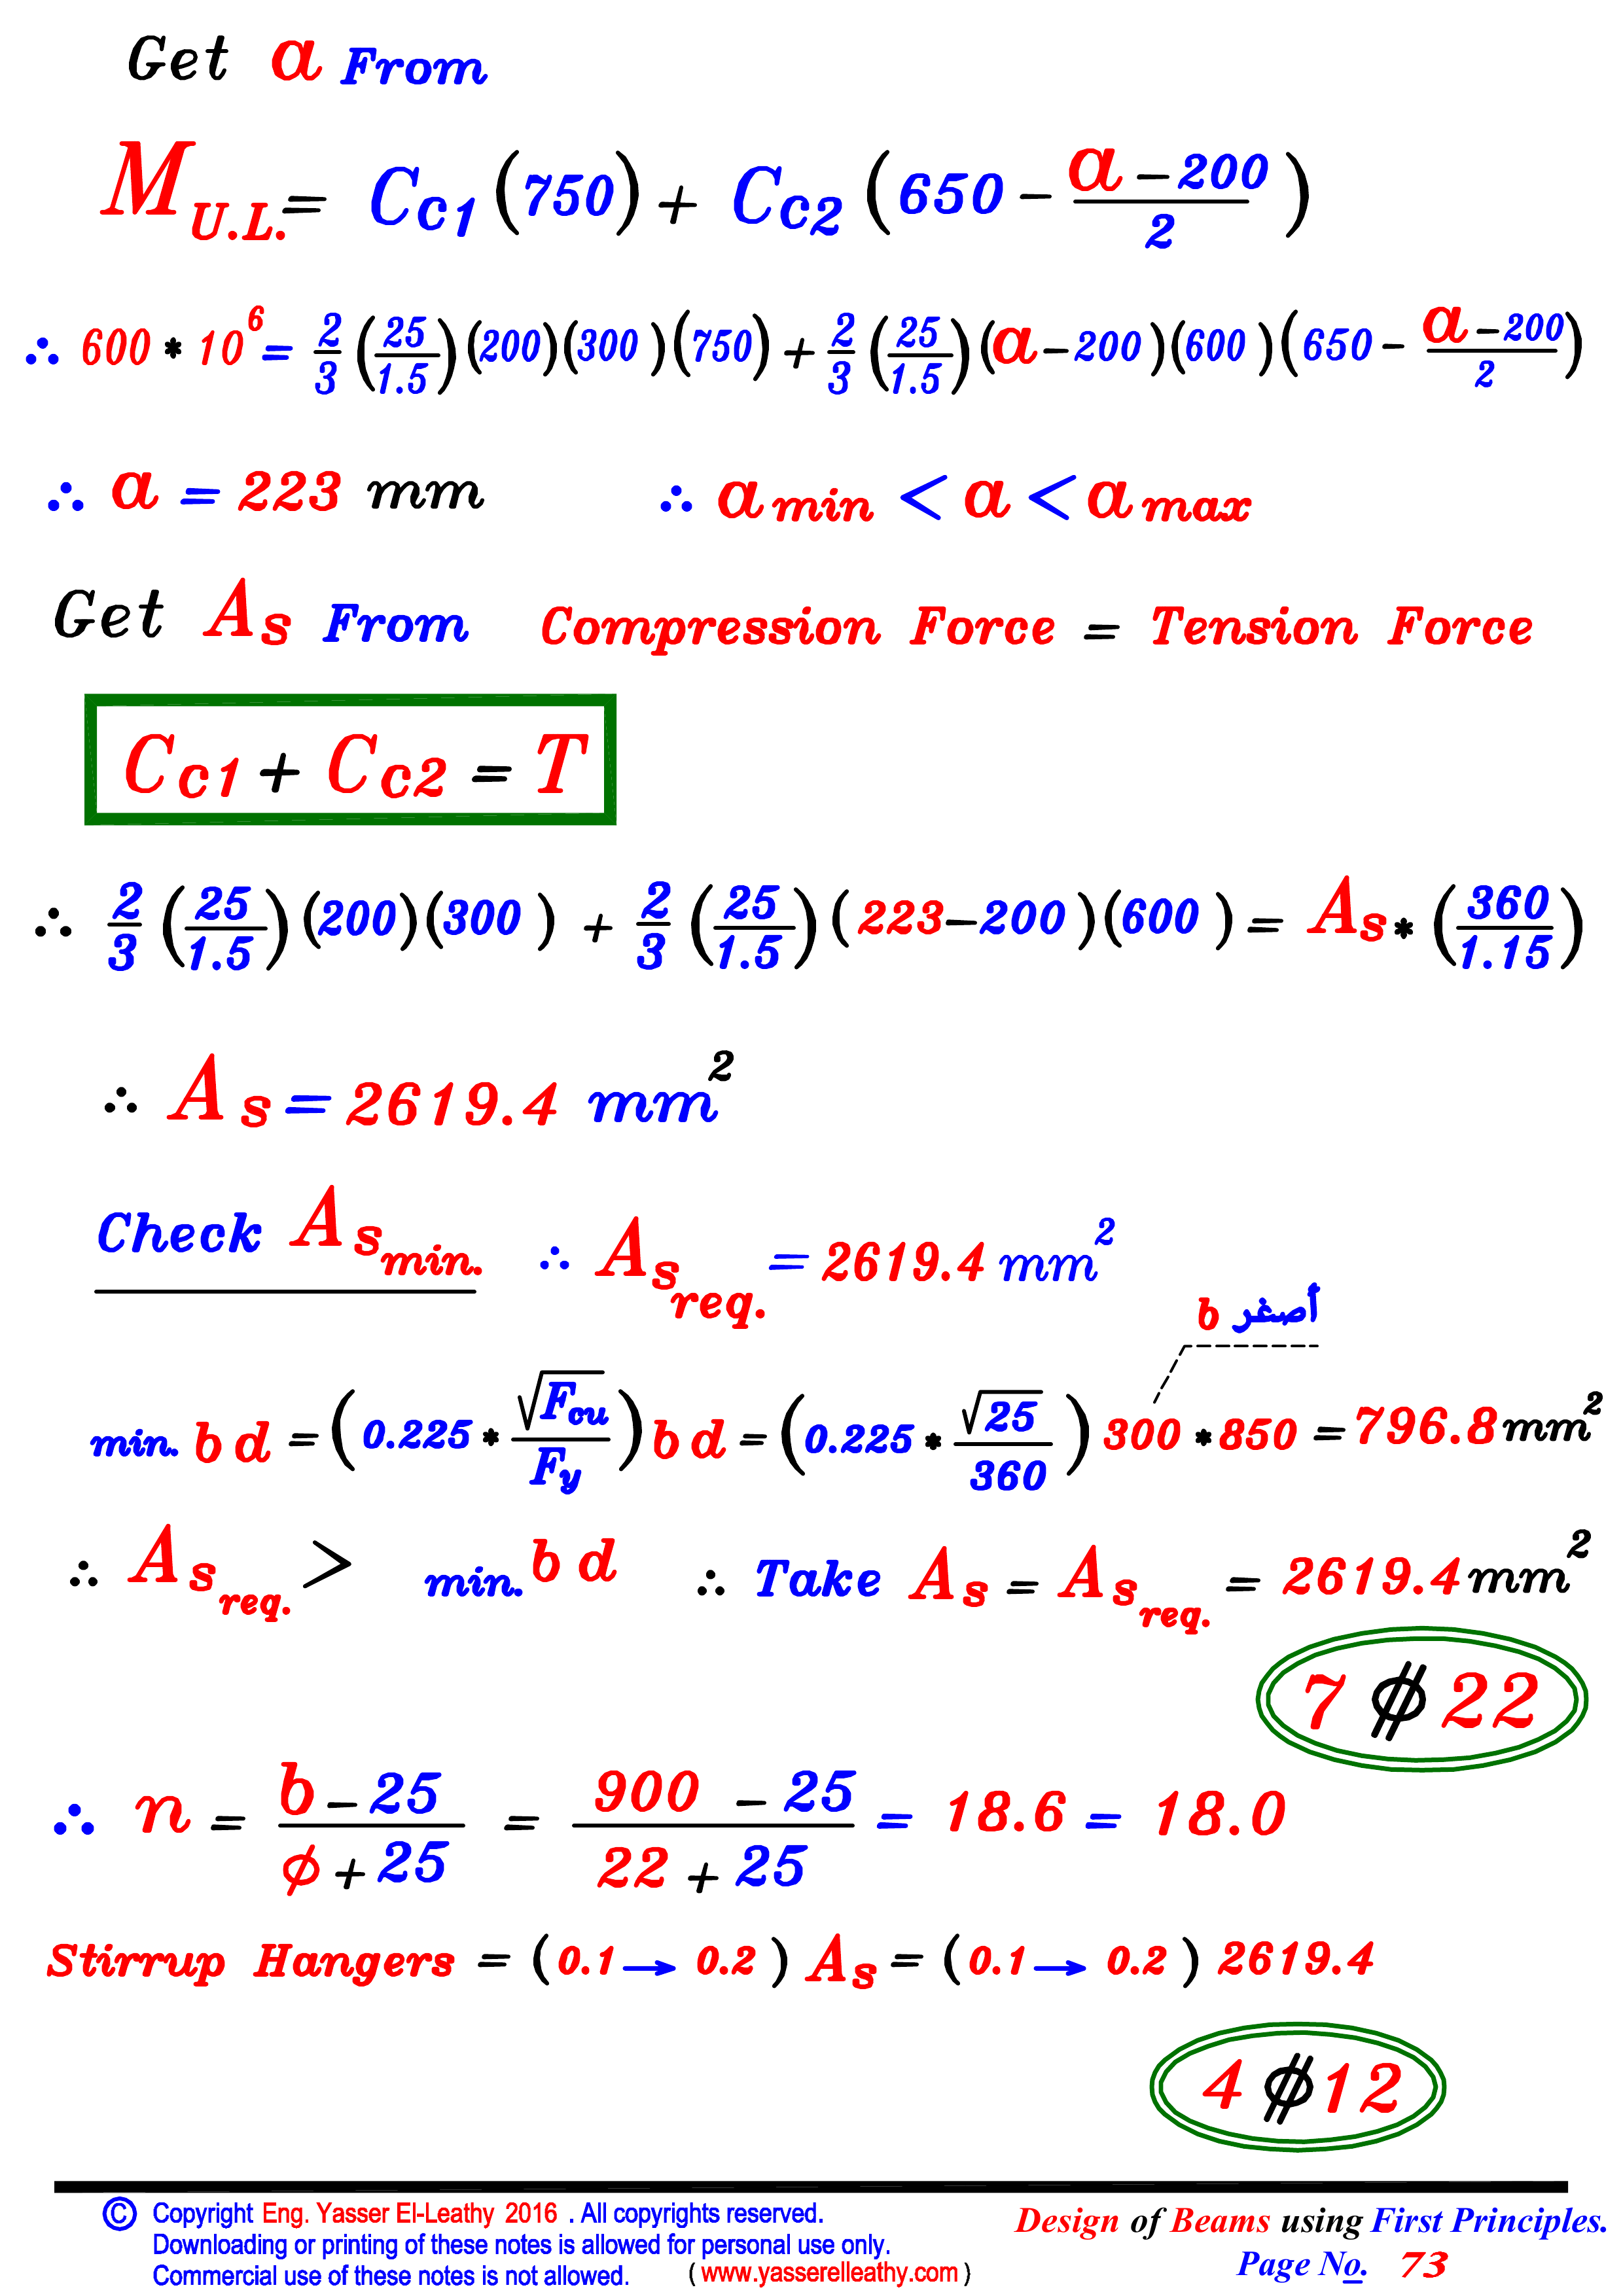 Get a From
M U.L. = Cc1 (750) + Cc2 (650 - (a - 200)/2)
∴ 600 * 10^6 = 2/3 (25/1.5) (200) (300) (750) + 2/3 (25/1.5) (a - 200) (600) (650 - (a - 200)/2)
∴ a = 223 mm ∴ a min < a < a max
Get As From Compression Force = Tension Force
Cc1 + Cc2 = T
∴ 2/3 (25/1.5) (200) (300) + 2/3 (25/1.5) (223 - 200) (600) = As * (360/1.15)
∴ As = 2619.4 mm²
Check As min. ∴ As req. = 2619.4 mm²
b أصغر
min. b d = (0.225 * √Fcu/Fy) b d = (0.225 * √25/360) 300 * 850 = 796.8 mm²
∴ As req. > min. b d ∴ Take As = As req. = 2619.4 mm²
7 ⌀ 22
∴ n = (b - 25)/(ϕ + 25) = (900 - 25)/(22 + 25) = 18.6 = 18.0
Stirrup Hangers = (0.1 → 0.2) As = (0.1 → 0.2) 2619.4
4 ⌀ 12
© Copyright Eng. Yasser El-Leathy 2016 . All copyrights reserved.
Downloading or printing of these notes is allowed for personal use only.
Commercial use of these notes is not allowed. ( www.yasserelleathy.com )
Design of Beams using First Principles.
Page No. 73